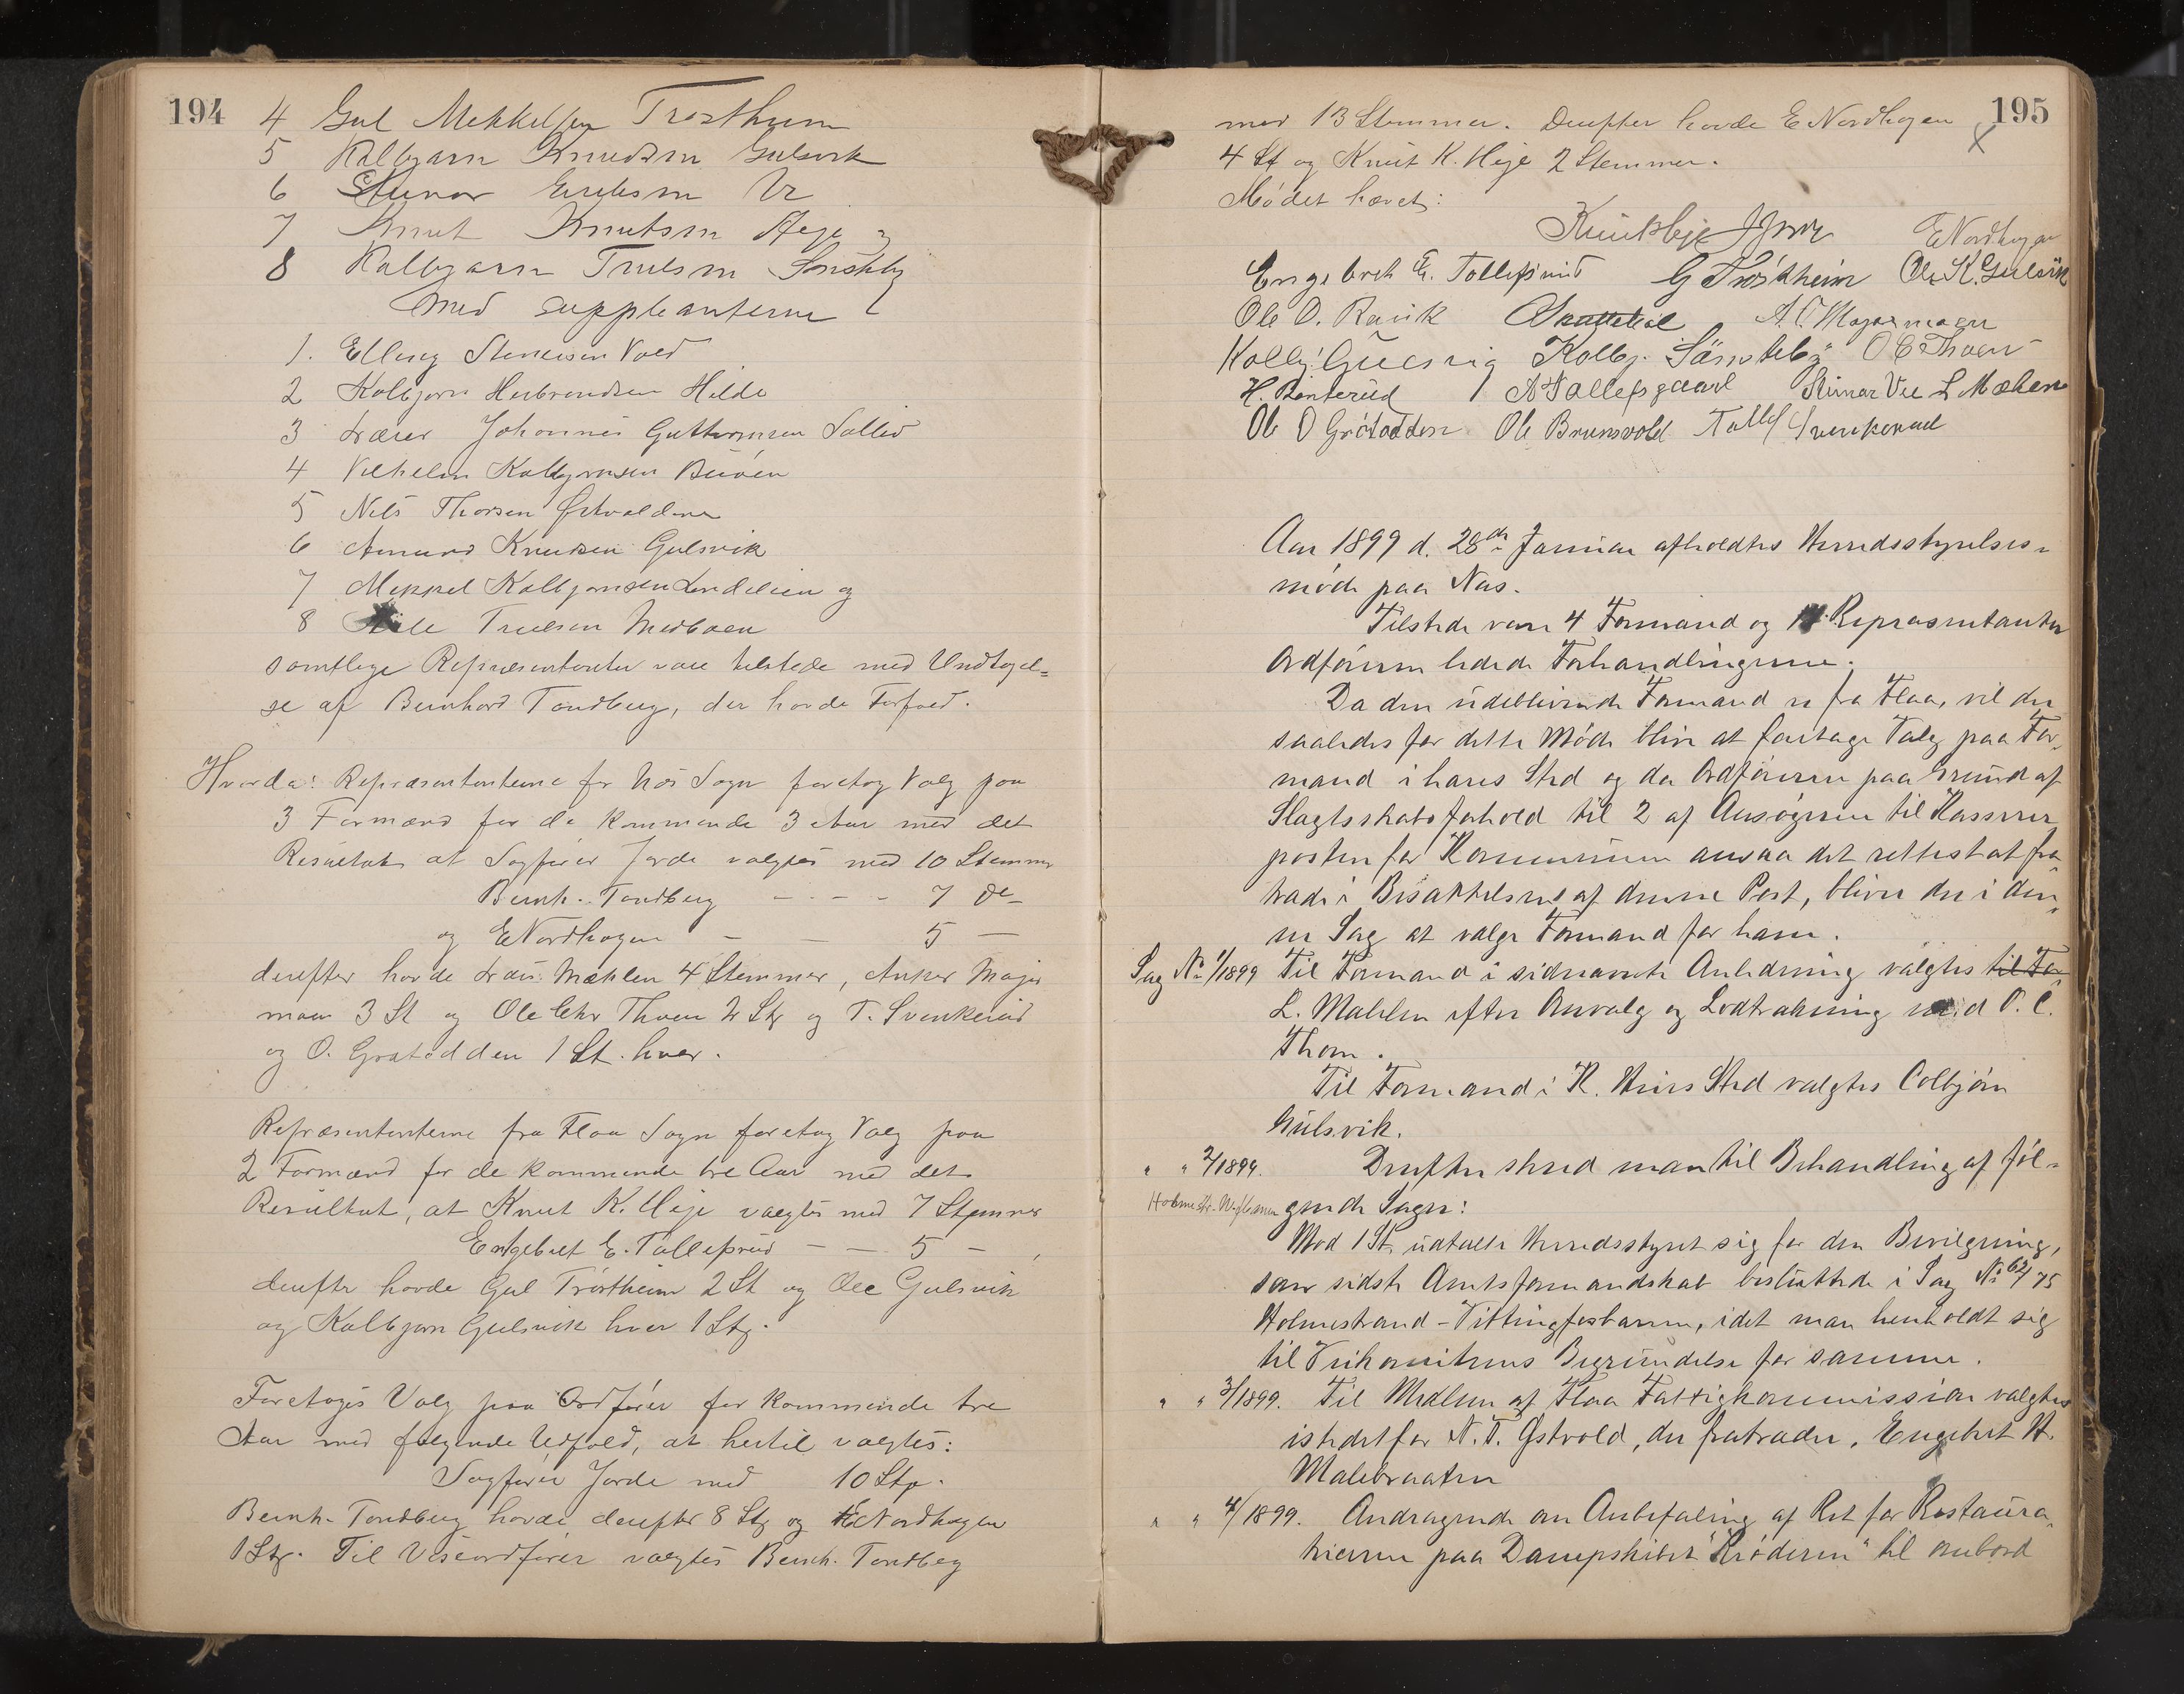 194
4 Gul Mekkelsen Trøstheim
5 Kolbjørn Knudsen Gulsvik
6 Steinar Eriksen Ve
7 Knut Knutsen Heje og
8 Kolbjørn Truelsen Sørsteby
med suppleanterne
1. Elling Steenersen Vold
2 Kolbjørn Herbrandsen Hilde
3 Lærer Johannes Guttormsen Sallid
4 Vilhelm Kolbjørnsen Buøen
5 Nils Thorsen Østvolden
6 Amund Knudsen Gulsvik
7 Mekkel Kolbjørnsen Lindelien og
8 Truelsen Medboen
samtlige Repræsentanter vare tilstede med Undtagel=
se af Bernhard Tandberg, der havde Forfald.
Hvorda: Repræsentanterne for Næs Sogn foretog Valg paa
3 Formænd for de kommende 3 Aar med det
Resultat at Sagfører Jorde valgtes med 10 Stemmer
Bernh. Tandberg - - - - 7 do
og E Nordhagen - - 5 -
derefter havde Lars Mæhlen 4 Stemmer, Anker Major
moen 3 St og Ole Chr Thoen 2 St og T. Svenkerud
og O. Grøtodden 1 St. hver.
Repræsentanterne fra Flaa Sogn foretog Valg paa
2 Formænd for de kommende tre Aar med det
Resultat, at Knut K. Heje valgtes med 7 Stemmer
Engebret E. Tollefsrud - - 5 -
derefter havde Gul Trøstheim 2 St og Ole Gulsvik
og Kolbjørn Gulsvik hver 1 St.
Foretoges Valg paa Ordfører for kommende tre
Aar med følgende Udfald, at hertil valgtes:
Sagfører Jorde med 10 St.
Bernh. Tandberg havde derefter 8 St og E Nordhagen
1 St. Til Viseordfører valgtes Bernh. Tandberg
195
med 13 Stemmer. Derefter havde E Nordhagen
4 St og Knut K. Heje 2 Stemmer.
Mødet hævet:
Knut K Heje J Jorde E Nordhagen
Engebret E. Tollefsrud G Trøstheim Ole K. Gulsvik
Ole O. Ravik A. O Majormoen
Kolbj. Gulsvig Kolbj. Sørsteby O C Thoen
H. Benterud A Tollefsgaard Steinar Vee L Mæhlen
Ole O Grötodden Ole Brunsvold Tollef Svenkerud
Aar 1899 d. 28de Januar afholdtes Herredsstyrelses-
møde paa Næs.
Tilstede vare 4 Formænd og Repræsentanter
Ordføreren ledede Forhandlingerne.
Da den udeblivende Formand er fra Flaa, vil der
saaledes for dette Møde blive at foretage Valg paa For-
mand i hans Sted og da Ordføreren paa Grund af
Slægtsskabsforhold til 2 af Ansøgerne til Kasserer
posten for Kommunen ansaa det rettest at fra
træde i Besættelsen af denne Post, bliver der i den-
ne Sag at vælge Formand for ham.
Sag No 1/1899 Til Formand i sidnævnte Anledning valgtes til For
L. Mæhlen efter Omvalg og Lodtrækning med O. C.
Thoen.
Til Formand i K. Heies Sted valgtes Colbjørn
Gulsvik.
" " 2/1899. Derefter skred man til Behandling af føl-
gende Sager:
Mod 1 St. udtalte Herredsstyret sig for den Bevilgning,
som sidste Amtsformandskab besluttede i Sag No 62/95
Holmestrand-Vittingfosbanen, idet man henholdt sig
til Veikomiteens Begrundelse for samme.
" " 3/1899. Til Medlem af Flaa Fattigkommission valgtes
istedetfor N. T. Østvold, der fratræder, Engebret H.
Malebraaten
" " 4/1899. Andragende om Anbefaling af Ret for Restaura-
tricen paa Dampskibet "Krøderen" til ombord